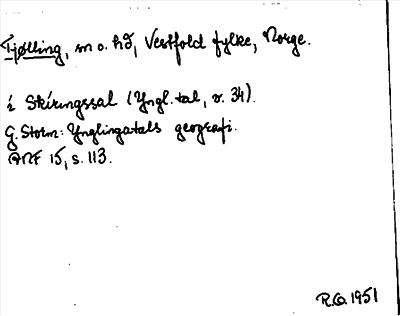 Tjølling, sn o. hd, Vestfold fylke, Norge.
i Skíringssal (Yngl.tal, v. 34).
G. Storm: Ynglingatals geografi.
ANF 15, s. 113.
R.O. 1951